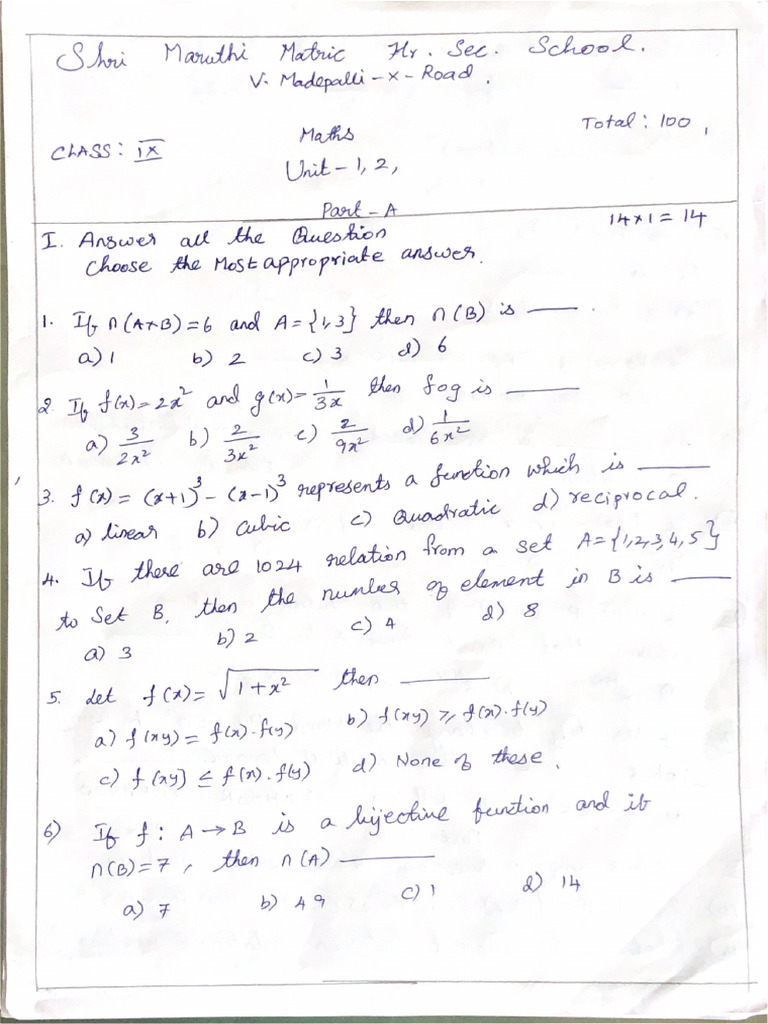 Shri Maruthi Matric Hr. Sec. School.
V. Madepalli - x - Road.
Total: 100,
CLASS: IX
Maths
Unit - 1, 2,
Part - A
14 x 1 = 14
I. Answer all the Question
Choose the Most appropriate answer.
1. If n(A×B) = 6 and A = {1,3} then n(B) is ——— .
a) 1 b) 2 c) 3 d) 6
2. If f(x) = 2x² and g(x) = 1/3x then fog is ———
a) 3/2x² b) 2/3x² c) 2/9x² d) 1/6x²
3. f(x) = (x+1)³ - (x-1)³ represents a function which is ———
a) linear b) Cubic c) Quadratic d) reciprocal.
4. If there are 1024 relation from a set A = {1,2,3,4,5}
to Set B, then the number of element in B is ———
a) 3 b) 2 c) 4 d) 8
5. Let f(x) = √(1+x²) then ———
a) f(xy) = f(x).f(y) b) f(xy) ≥ f(x).f(y)
c) f(xy] ≤ f(x).f(y) d) None of these.
6) If f: A → B is a bijective function and if
n(B) = 7, then n(A) ———
a) 7 b) 49 c) 1 d) 14